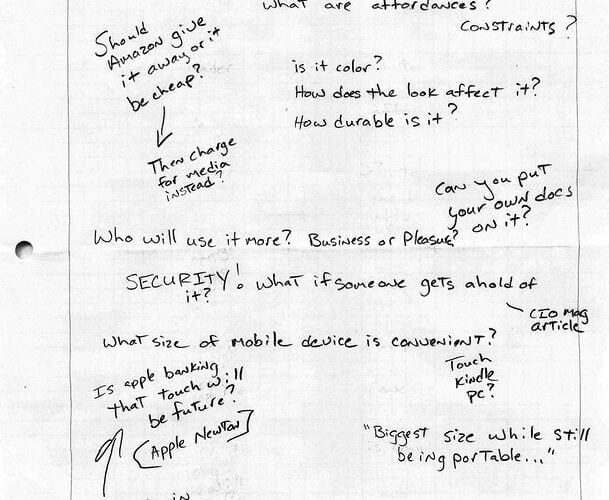 What are affordances?
Constraints?
Should
Amazon give
it away or it
be cheap?
Then charge
for media
instead?
is it color?
How does the look affect it?
How durable is it?
Can you put
your own docs
on it?
Who will use it more? Business or Pleasure?
SECURITY! What if someone gets ahold of
it?
CIO Mag
article
What size of mobile device is convenient?
Is apple banking
that touch will
be future?
(Apple Newton)
Touch
Kindle
PC?
"Biggest size while still
being portable..."
in